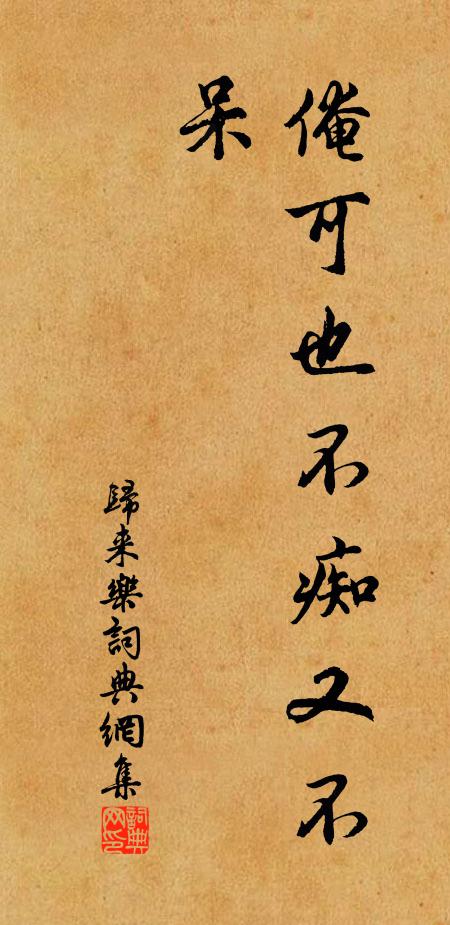 俺可也不痴又不
呆
歸来樂詞典網集
詞典
网印